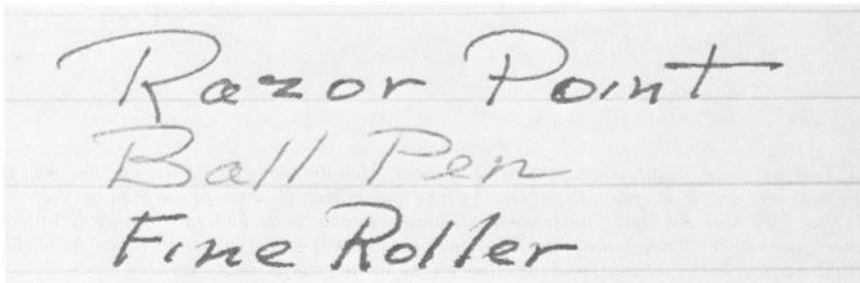 Razor Point
Ball Pen
Fine Roller